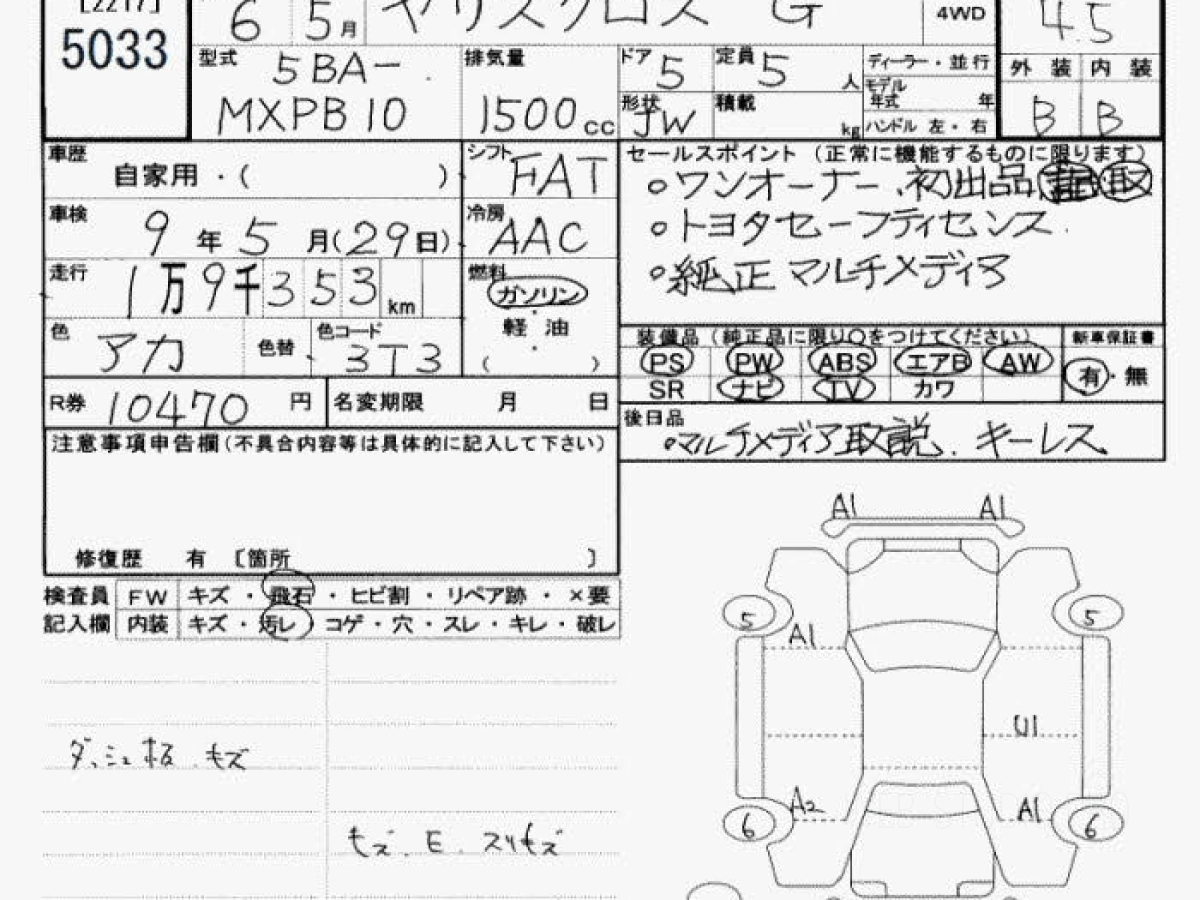 [2217]
5033
6 5月 ヤリスクロス G 4WD 4.5
型式 5BA-
MXPB10
排気量
1500cc
ドア 5
定員 5 人
形状 JW
積載 kg
ディーラー・並行
モデル年式 年
ハンドル 左・右
外装 内装
B B
車歴 自家用・( )
シフト FAT
車検 9年5月(29日)
冷房 AAC
走行 1万9千353km
燃料
ガソリン
軽油
( )
色 アカ 色替 色コード 3T3
R券 10470円 名変期限 月 日
セールスポイント (正常に機能するものに限ります)
○ワンオーナー、初出品 取
○トヨタセーフティセンス
○純正マルチメディア
装備品 (純正品に限り○をつけてください) 新車保証書
PS PW ABS エアB AW 有・無
SR ナビ TV カワ
後日品
○マルチメディア取説、キーレス
注意事項申告欄(不具合内容等は具体的に記入して下さい)
修復歴 有 〔箇所 〕
検査員 FW キズ・飛石・ヒビ割・リペア跡・×要
記入欄 内装 キズ・汚レ・コゲ・穴・スレ・キレ・破レ
ダッシュ板 キズ
キズ、E、スリキズ
A1 A1
5 5
A1
U1
A2 A1
6 6